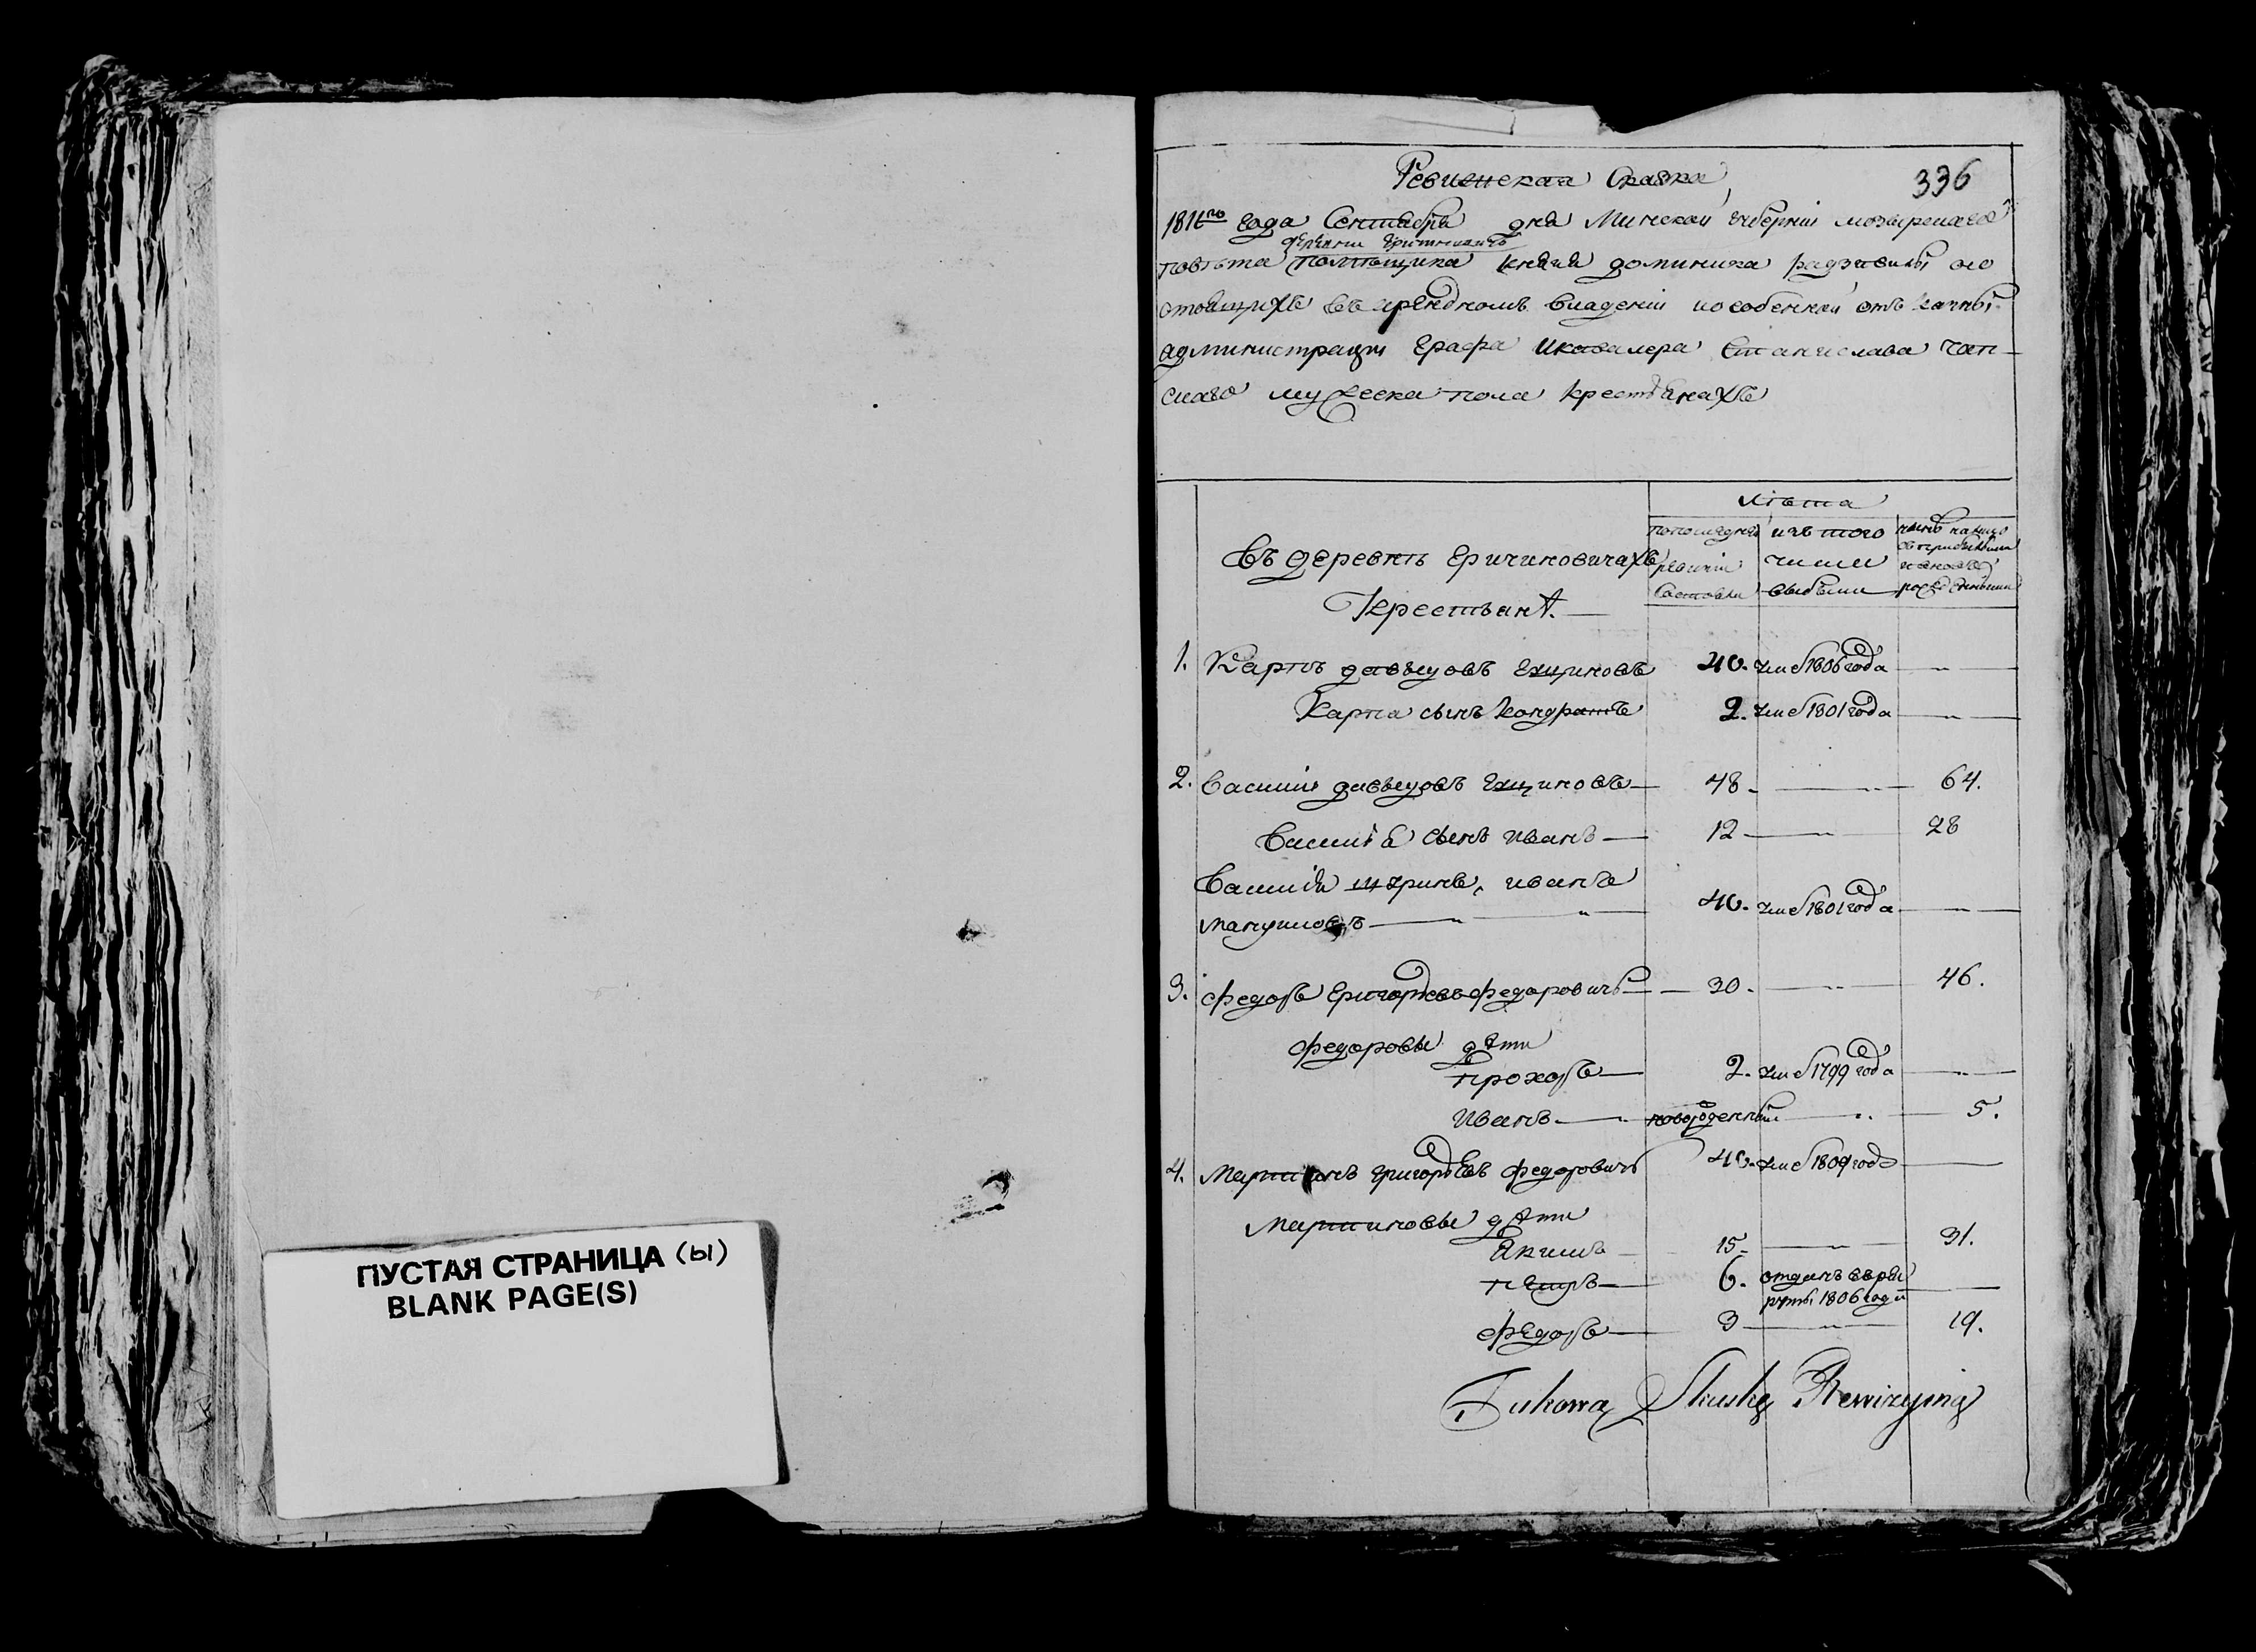 ПУСТАЯ СТРАНИЦА (Ы)
BLANK PAGE(S)
336
Ревижская Скаска
1811го года Сентября дня Минской губерніи мозырскаго
деревни
повѣта помѣщика князя доминика радзивила со
стоящихъ въ арендномъ владеніи
администраціи графа икавалера Станислава чап
скаго мужеска пола крестьянахъ
Въ деревнѣ Гричиновичахъ
Крестьянъ.
Лѣта
попоследней ревизіи состояли
изъ того числа выбыли
1. Карпъ давыдовъ 40. умеР 1806 года
Карпа сынъ кондратъ 2. умеР 1801 года
2. Василій давыдовъ 48 64.
Василія сынъ иванъ 12 28
Василія шуринъ, иванъ
40. умеР 1801 года
3. Федоръ Григорьевъ Федоровичъ 30. 46.
Федоровы дѣти
прохоръ 2. умеР 1799 года
иванъ новорожденный 5.
4. Мартинъ григорьевъ Федоровичъ 40. умеР 1809 года
Мартиновы дѣти
Якимъ 15. 31.
петръ 6. отданъ въ рек
руты 1806 года
Федоръ 3 19.
Skaskę Rewizyiną